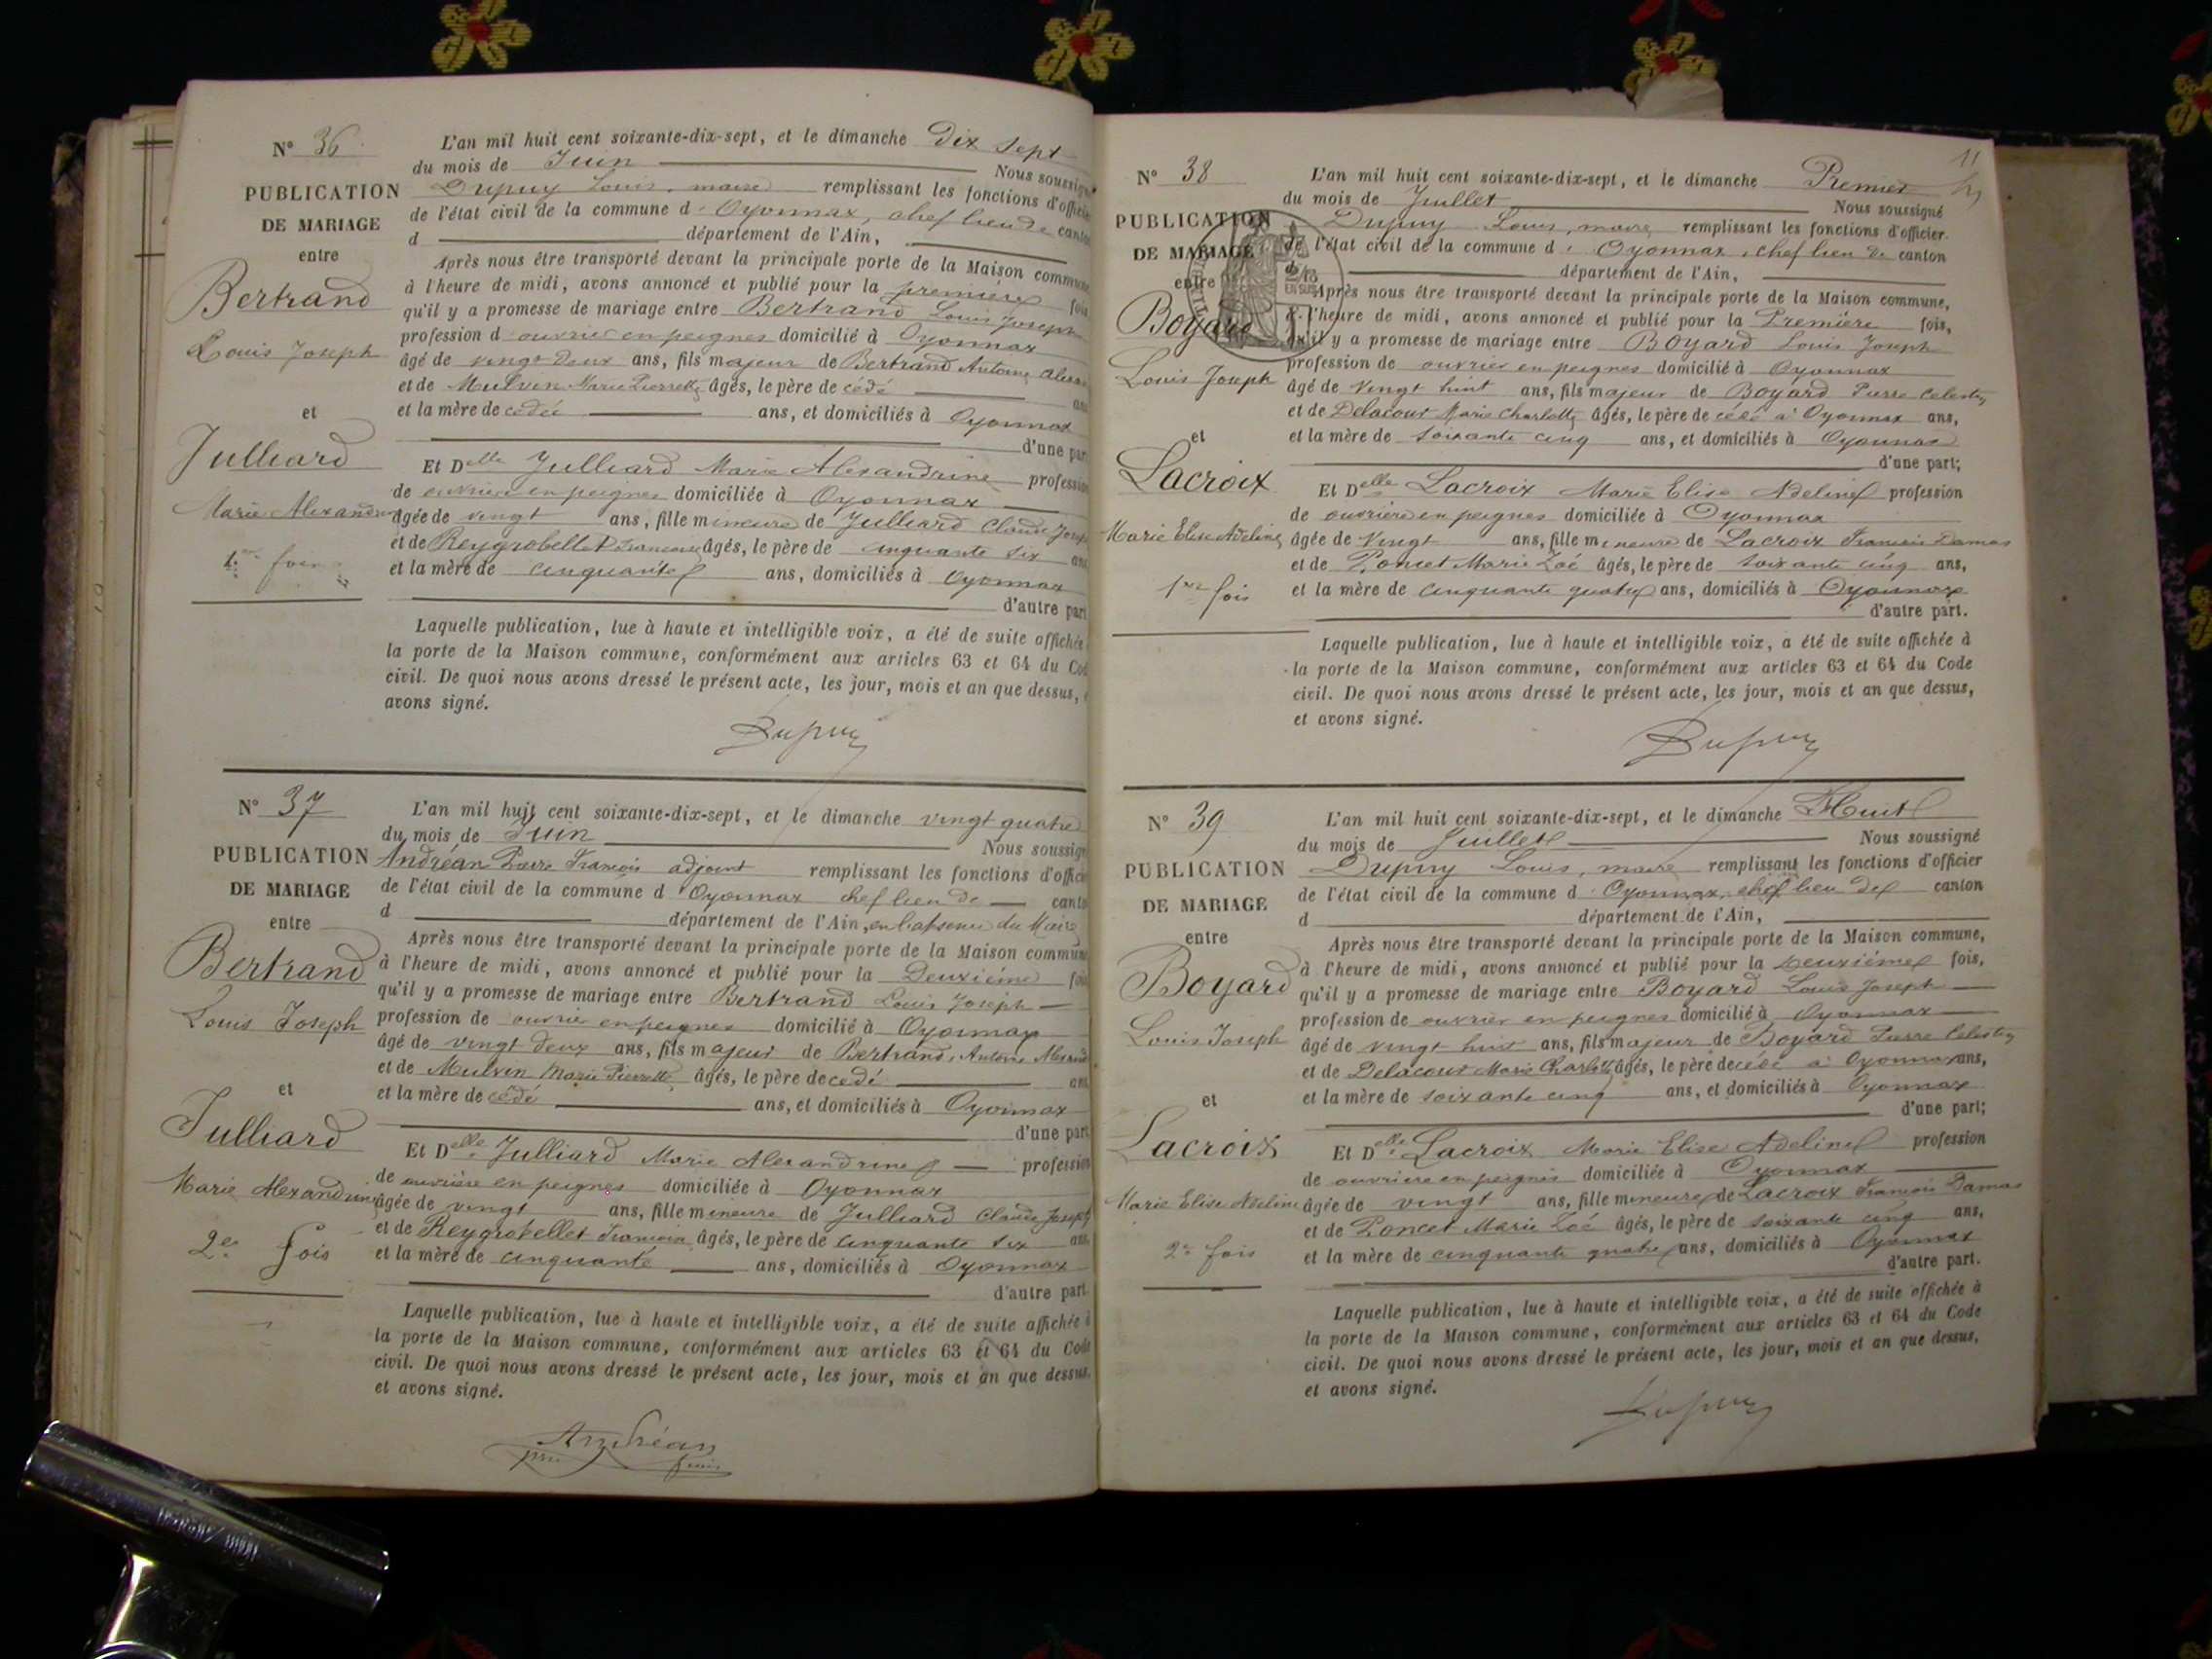 N° 36
PUBLICATION
DE MARIAGE
entre
Bertrand
Louis Joseph
et
Julliard
Marie Alexandrine
1ère fois
L'an mil huit cent soixante-dix-sept, et le dimanche Dix Sept
du mois de Juin Nous soussigné
Dupuy Louis, maire remplissant les fonctions d'officier
de l'état civil de la commune d'Oyonnax, chef lieu de canton
d département de l'Ain,
Après nous être transporté devant la principale porte de la Maison commune,
à l'heure de midi, avons annoncé et publié pour la première fois,
qu'il y a promesse de mariage entre Bertrand Louis Joseph
profession d ouvrier en peignes domicilié à Oyonnax
âgé de vingt deux ans, fils majeur de Bertrand Antoine
et de Mulvin Marie Pierrette, âgés, le père de cédé ans
et la mère de cédée ans, et domiciliés à Oyonnax
d'une part
Et Delle Julliard Marie Alexandrine profession
de ouvrière en peignes domiciliée à Oyonnax
âgée de vingt ans, fille mineure de Julliard Claude Joseph
et de Reygrobellet Françoise âgés, le père de cinquante six ans
et la mère de cinquante ans, domiciliés à Oyonnax
d'autre part
Laquelle publication, lue à haute et intelligible voix, a été de suite affichée à
la porte de la Maison commune, conformément aux articles 63 et 64 du Code
civil. De quoi nous avons dressé le présent acte, les jour, mois et an que dessus, et
avons signé.
Dupuy
N° 37
PUBLICATION
DE MARIAGE
entre
Bertrand
Louis Joseph
et
Julliard
Marie Alexandrine
2e fois
L'an mil huit cent soixante-dix-sept, et le dimanche vingt quatre
du mois de Juin Nous soussigné
Andréan Pierre François adjoint remplissant les fonctions d'officier
de l'état civil de la commune d'Oyonnax chef lieu de canton
d département de l'Ain, en l'absence du Maire
Après nous être transporté devant la principale porte de la Maison commune
à l'heure de midi, avons annoncé et publié pour la Deuxième fois
qu'il y a promesse de mariage entre Bertrand Louis Joseph
profession de ouvrier en peignes domicilié à Oyonnax
âgé de vingt deux ans, fils majeur de Bertrand Antoine
et de Mulvin Marie Pierrette âgés, le père de cedé ans
et la mère de cédé ans, et domiciliés à Oyonnax
d'une part
Et Delle Julliard Marie Alexandrine profession
de ouvrière en peignes domiciliée à Oyonnax
âgée de vingt ans, fille mineure de Julliard Claude Joseph
et de Reygrobellet Françoise âgés, le père de cinquante six ans
et la mère de cinquante ans, domiciliés à Oyonnax
d'autre part
Laquelle publication, lue à haute et intelligible voix, a été de suite affichée à
la porte de la Maison commune, conformément aux articles 63 et 64 du Code
civil. De quoi nous avons dressé le présent acte, les jour, mois et an que dessus,
et avons signé.
Andréan
11
N° 38
PUBLICATION
DE MARIAGE
entre
Boyard
Louis Joseph
et
Lacroix
Marie Elise Adeline
1re fois
L'an mil huit cent soixante-dix-sept, et le dimanche Premier
du mois de Juillet Nous soussigné
Dupuy Louis, maire, remplissant les fonctions d'officier
de l'état civil de la commune d'Oyonnax, chef lieu de canton
département de l'Ain,
Après nous être transporté devant la principale porte de la Maison commune,
à l'heure de midi, avons annoncé et publié pour la Première fois,
qu'il y a promesse de mariage entre Boyard Louis Joseph
profession de ouvrier en peignes domicilié à Oyonnax
âgé de vingt huit ans, fils majeur de Boyard Pierre Celestin
et de Delacour Marie Charlotte âgés, le père de cédé à Oyonnax ans,
et la mère de soixante cinq ans, et domiciliés à Oyonnax
d'une part;
Et Delle Lacroix Marie Elise Adeline profession
de ouvrière en peignes domiciliée à Oyonnax
âgée de vingt ans, fille mineure de Lacroix François Damas
et de Poncet Marie Zoé âgés, le père de soixante cinq ans,
et la mère de cinquante quatre ans, domiciliés à Oyonnax
d'autre part.
Laquelle publication, lue à haute et intelligible voix, a été de suite affichée à
la porte de la Maison commune, conformément aux articles 63 et 64 du Code
civil. De quoi nous avons dressé le présent acte, les jour, mois et an que dessus,
et avons signé.
Dupuy
N° 39
PUBLICATION
DE MARIAGE
entre
Boyard
Louis Joseph
et
Lacroix
Marie Elise Adeline
2e fois
L'an mil huit cent soixante-dix-sept, et le dimanche Huit
du mois de Juillet Nous soussigné
Dupuy Louis, maire remplissant les fonctions d'officier
de l'état civil de la commune d'Oyonnax, chef lieu de canton
d département de l'Ain,
Après nous être transporté devant la principale porte de la Maison commune,
à l'heure de midi, avons annoncé et publié pour la deuxième fois,
qu'il y a promesse de mariage entre Boyard Louis Joseph
profession de ouvrier en peignes domicilié à Oyonnax
âgé de vingt huit ans, fils majeur de Boyard Pierre Celestin
et de Delacour Marie Charlotte âgés, le père decédé à Oyonnax ans,
et la mère de soixante cinq ans, et domiciliés à Oyonnax
d'une part;
Et Delle Lacroix Marie Elise Adeline profession
de ouvrière en peignes domiciliée à Oyonnax
âgée de vingt ans, fille mineure de Lacroix François Damas
et de Poncet Marie Zoé âgés, le père de soixante cinq ans,
et la mère de cinquante quatre ans, domiciliés à Oyonnax
d'autre part.
Laquelle publication, lue à haute et intelligible voix, a été de suite affichée à
la porte de la Maison commune, conformément aux articles 63 et 64 du Code
civil. De quoi nous avons dressé le présent acte, les jour, mois et an que dessus,
et avons signé.
Dupuy